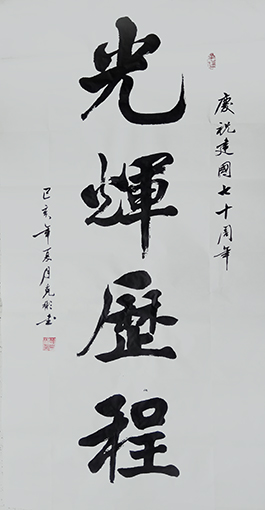 慶祝建國七十周年
光輝歷程
己亥年夏月克彬書